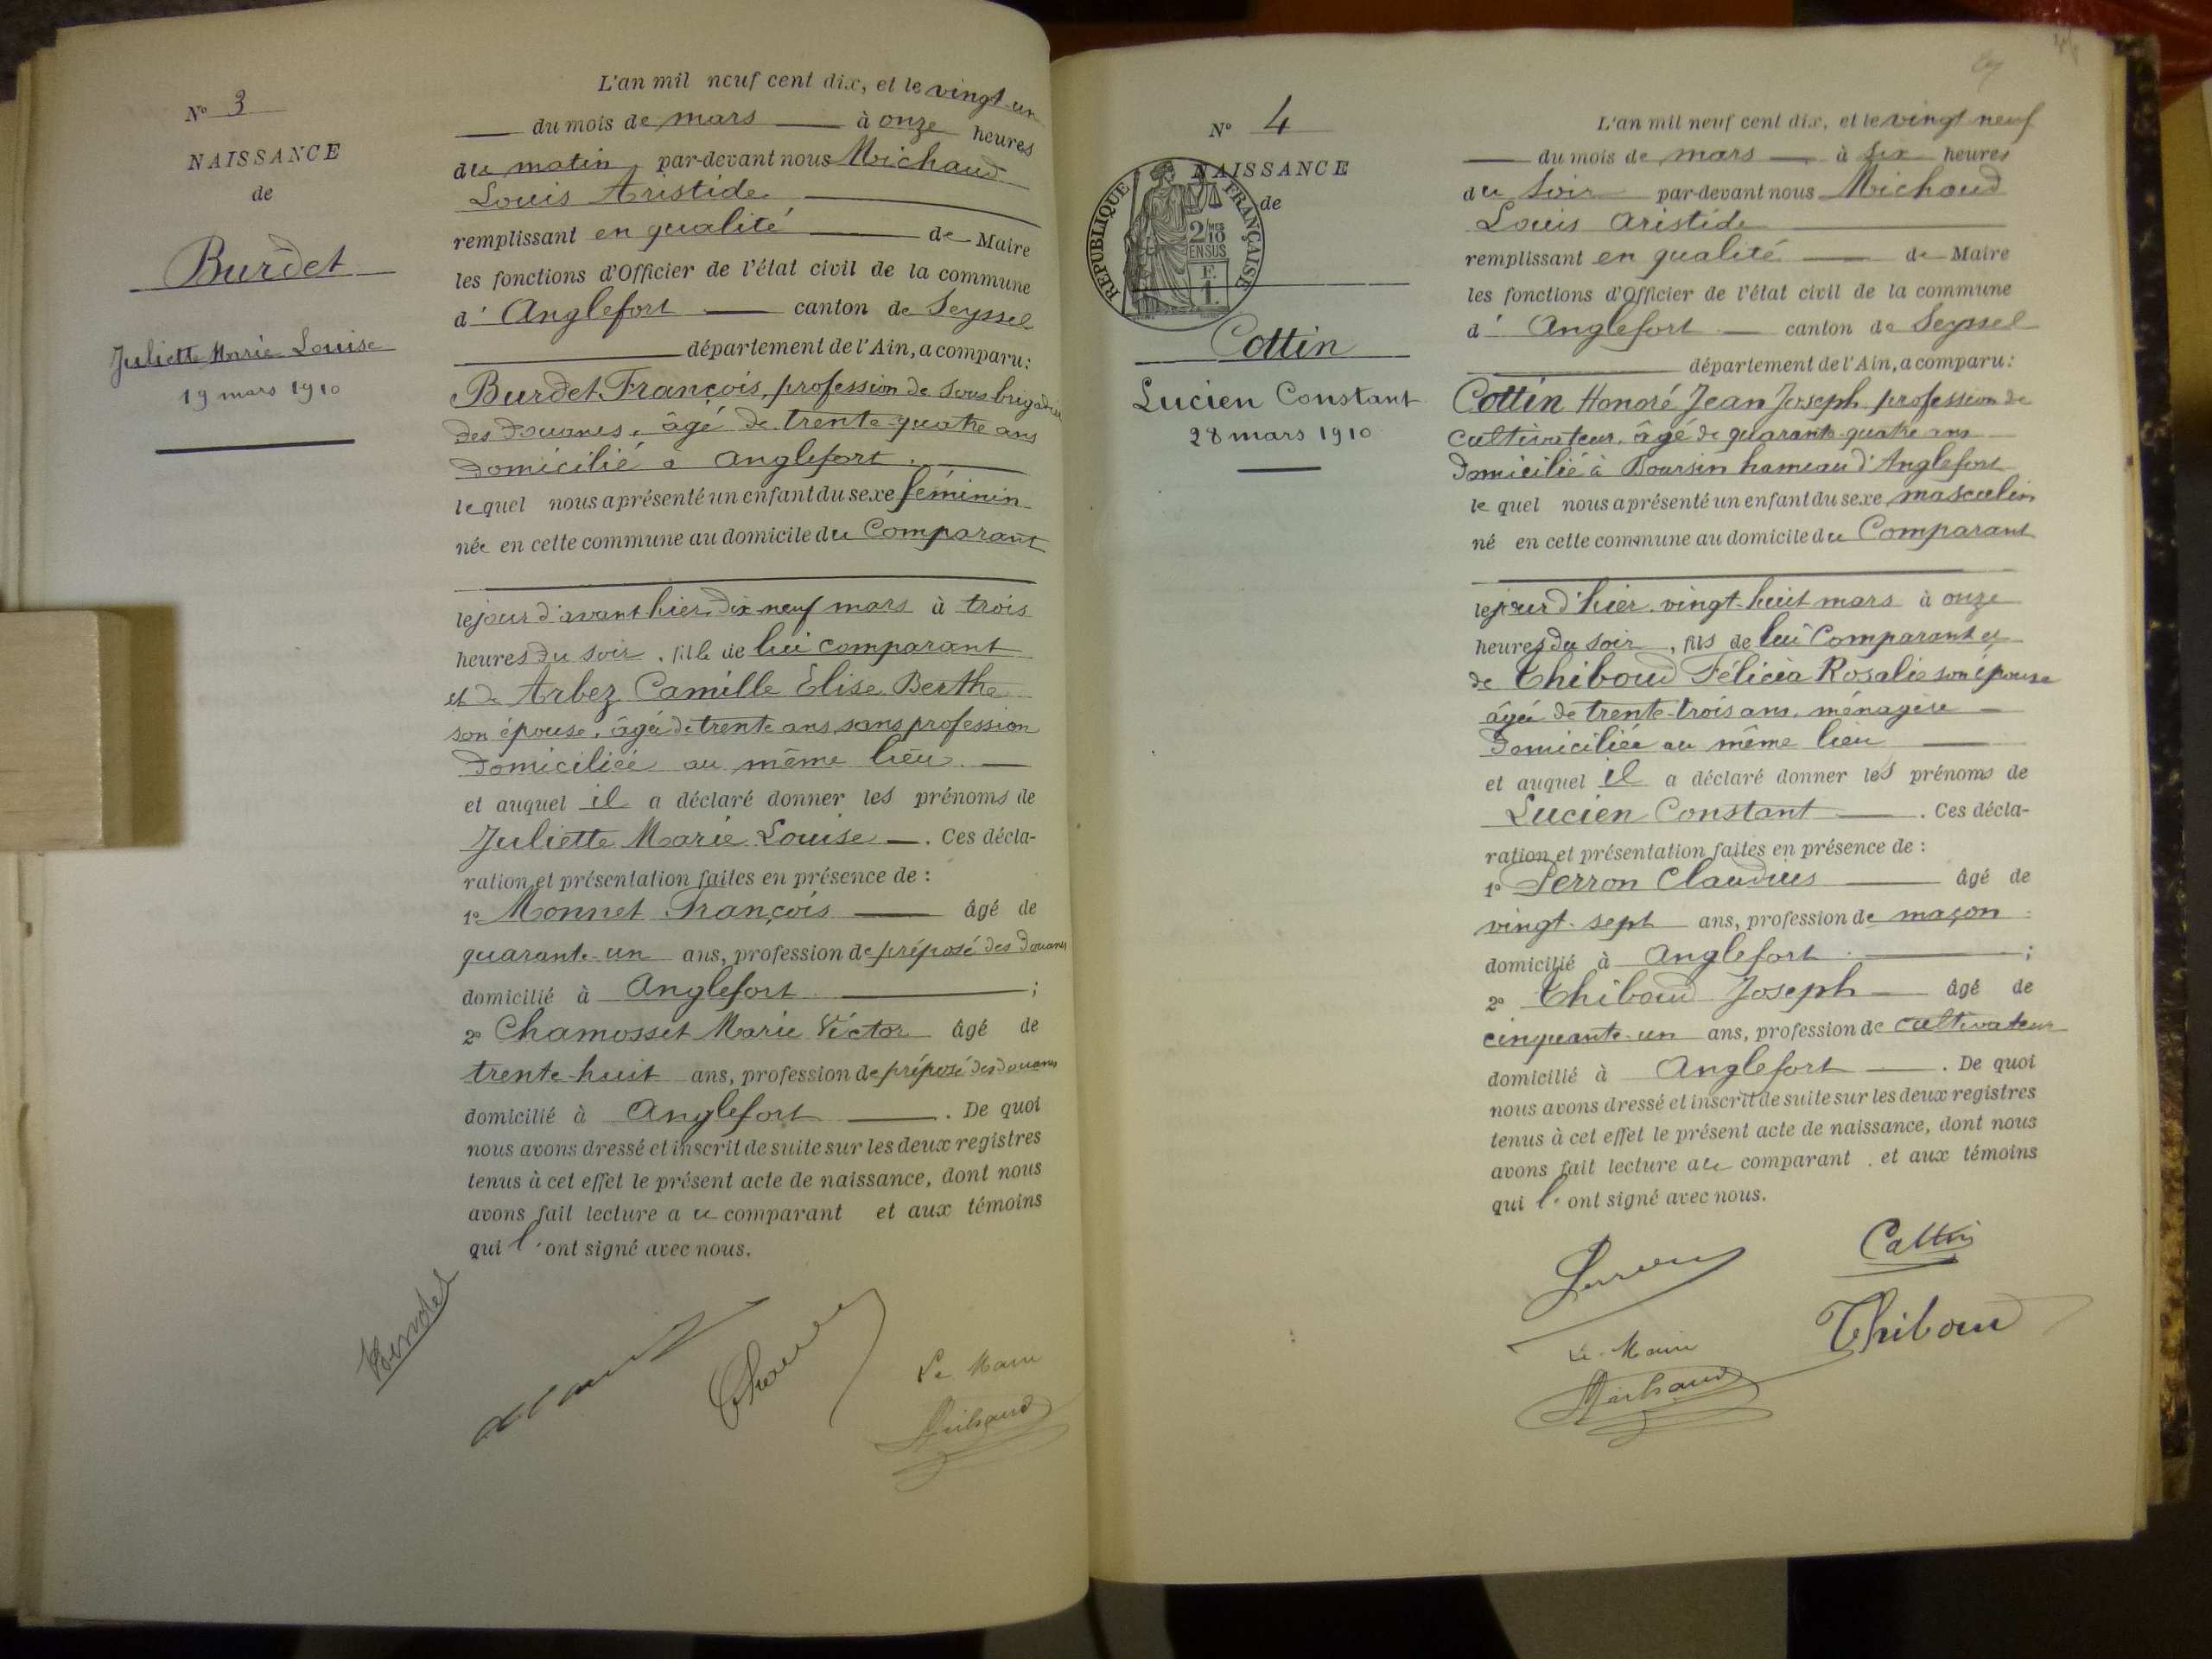 N° 3
NAISSANCE
de
Burdet
Juliette Marie Louise
19 mars 1910
L'an mil neuf cent dix, et le vingt-un
du mois de mars à onze heures
du matin, par-devant nous Michaud
Louis Aristide
remplissant en qualité de Maire
les fonctions d'Officier de l'état civil de la commune
d' Anglefort canton de Seyssel
département de l'Ain, a comparu:
Burdet François, profession de sous brigadier
des Douanes, âgé de trente-quatre ans
domicilié à Anglefort.
le quel nous a présenté un enfant du sexe féminin
née en cette commune au domicile du Comparant
le jour d'avant hier, dix-neuf mars à trois
heures du soir, fille de lui comparant
et de Arbez Camille Elise Berthe
son épouse, âgée de trente ans, sans profession
domiciliée au même lieu.
et auquel il a déclaré donner les prénoms de
Juliette Marie Louise. Ces décla-
ration et présentation faites en présence de :
1° Monnet François âgé de
quarante-un ans, profession de préposé des Douanes
domicilié à Anglefort ;
2° Chamosset Marie Victor âgé de
trente-huit ans, profession de préposé des Douanes
domicilié à Anglefort. De quoi
nous avons dressé et inscrit de suite sur les deux registres
tenus à cet effet le présent acte de naissance, dont nous
avons fait lecture au comparant et aux témoins
qui l'ont signé avec nous.
Burdet
Le Maire
Michaud
N° 4
NAISSANCE
de
REPUBLIQUE FRANÇAISE
2/10 MES
EN SUS
F.
1.
Cottin
Lucien Constant
28 mars 1910
L'an mil neuf cent dix, et le vingt neuf
du mois de mars à six heures
du soir par-devant nous Michaud
Louis Aristide
remplissant en qualité de Maire
les fonctions d'Officier de l'état civil de la commune
d' Anglefort canton de Seyssel
département de l'Ain, a comparu:
Cottin Honoré Jean Joseph profession de
cultivateur, âgé de quarante-quatre ans
domicilié à Boursin hameau d'Anglefort
le quel nous a présenté un enfant du sexe masculin
né en cette commune au domicile du Comparant
le jour d'hier, vingt-huit mars à onze
heures du soir, fils de lui Comparant et
de Thiboud Félicia Rosalie son épouse
âgée de trente-trois ans, ménagère
domiciliée au même lieu
et auquel il a déclaré donner les prénoms de
Lucien Constant. Ces décla-
ration et présentation faites en présence de :
1° Perron Claudius âgé de
vingt-sept ans, profession de maçon
domicilié à Anglefort ;
2° Thiboud Joseph âgé de
cinquante-un ans, profession de cultivateur
domicilié à Anglefort. De quoi
nous avons dressé et inscrit de suite sur les deux registres
tenus à cet effet le présent acte de naissance, dont nous
avons fait lecture au comparant, et aux témoins
qui l'ont signé avec nous.
Perron Cottin
Le Maire Thiboud
Michaud